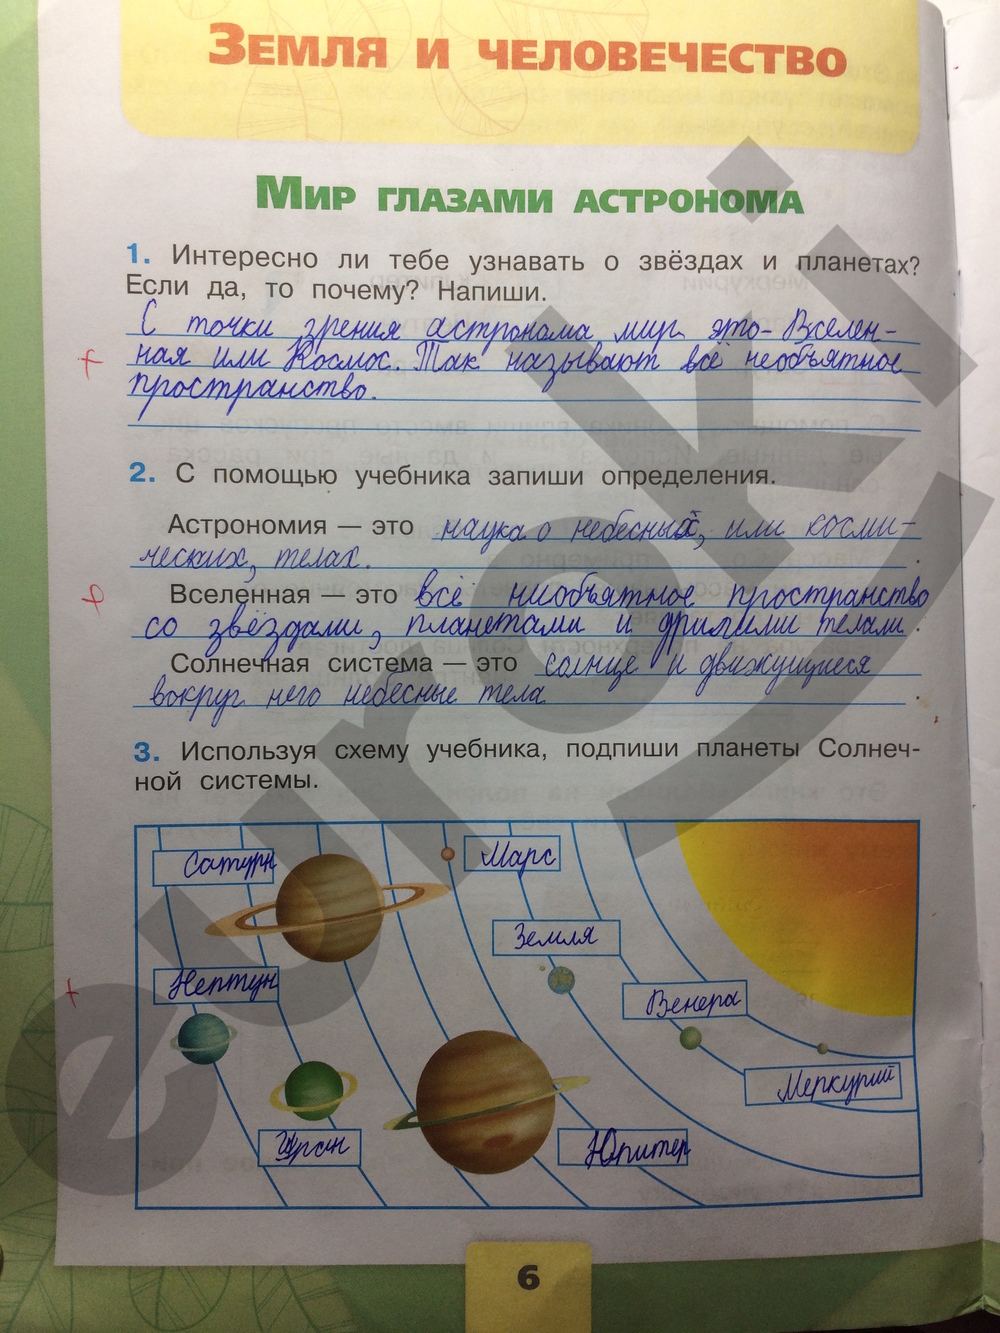 Земля и человечество
Мир глазами астронома
1. Интересно ли тебе узнавать о звёздах и планетах?
Если да, то почему? Напиши.
С точки зрения астронома мир это - Вселен-
ная или Космос. Так называют всё необъятное
пространство.
2. С помощью учебника запиши определения.
Астрономия — это наука о небесных, или косми-
ческих, телах.
Вселенная — это всё необъятное пространство
со звёздами, планетами и другими телами.
Солнечная система — это солнце и движущиеся
вокруг него небесные тела.
3. Используя схему учебника, подпиши планеты Солнеч-
ной системы.
Сатурн
Марс
Земля
Нептун
Венера
Меркурий
Уран
Юпитер
6
euroki